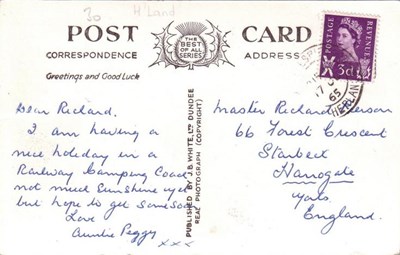 30 H'Land
POST CARD
THE BEST OF ALL SERIES
CORRESPONDENCE ADDRESS
Greetings and Good Luck
POSTAGE REVENUE
3d
17
65
Dear Richard,
I am having a
nice holiday in a
Railway Camping Coach
not much sunshine yet
but hope to get some soon
Love
Auntie Peggy
xxx
PUBLISHED BY J.B. WHITE, LTD DUNDEE
REAL PHOTOGRAPH (COPYRIGHT)
Master Richard
66 Forest Crescent
Starbeck
Harrogate
Yorks
England.